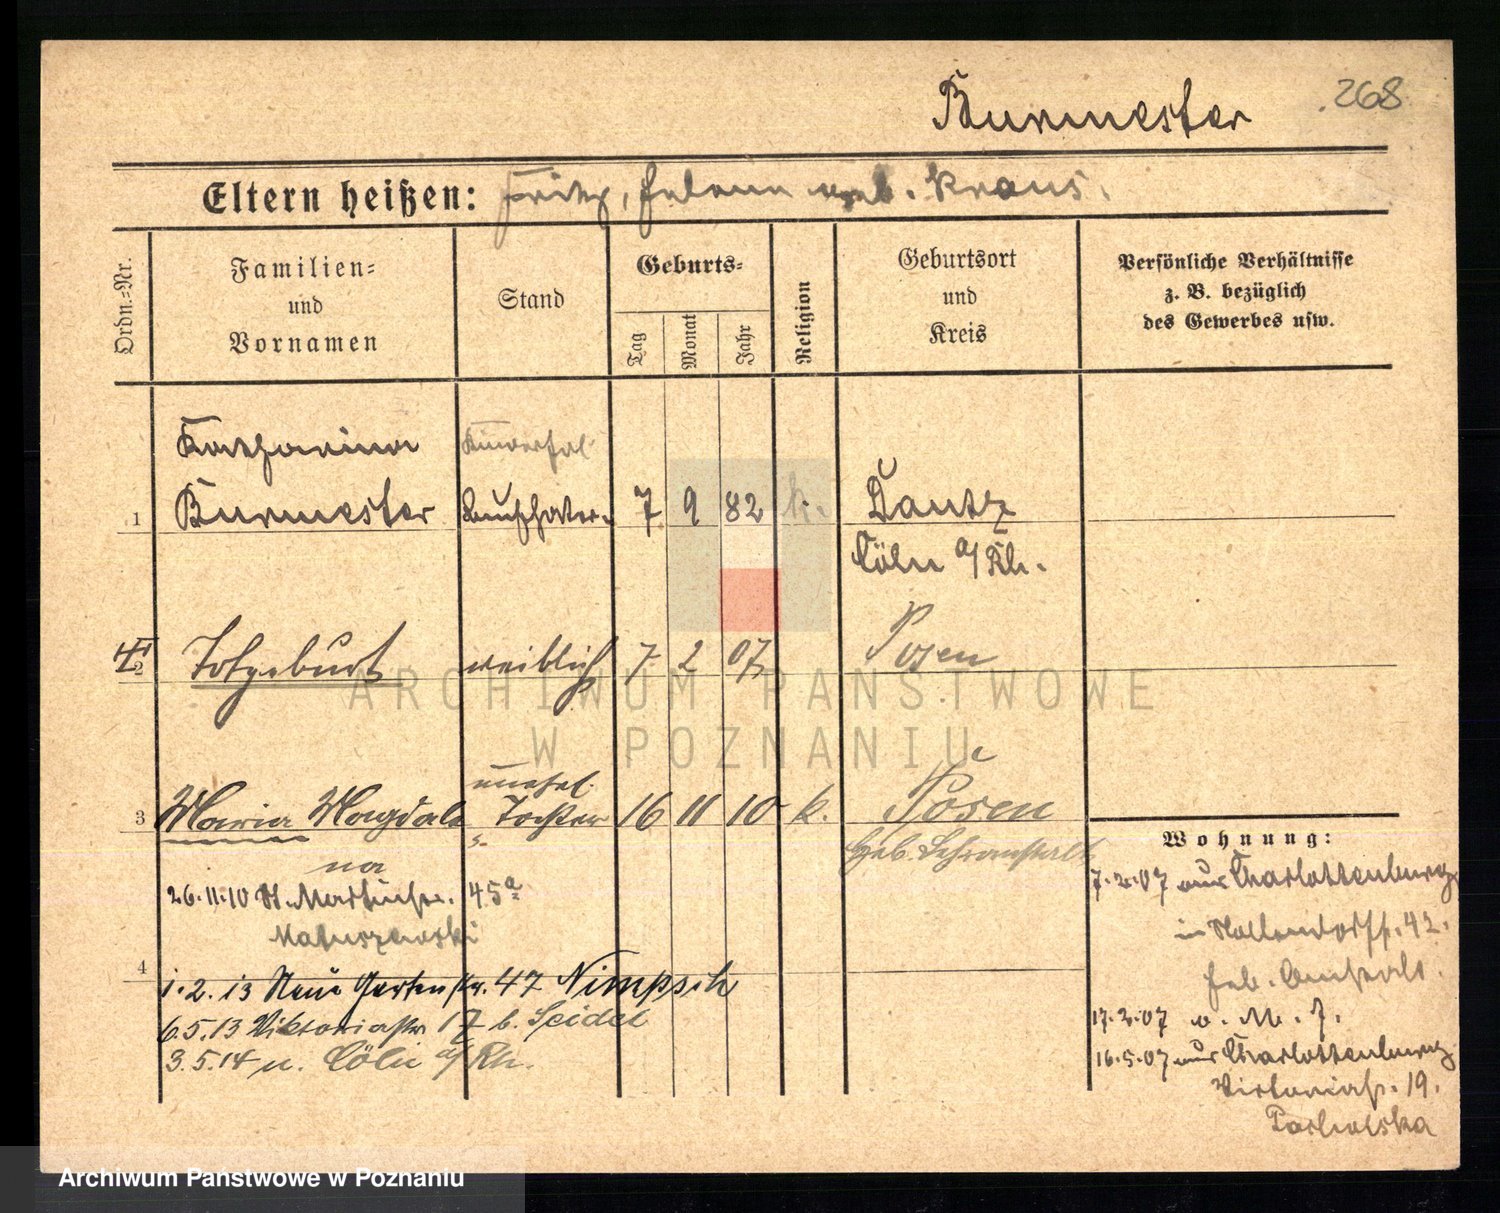 Burmester
268
Eltern heißen: Fritz, Helene geb. Kraus.
Ordn.=Nr.
Familien=
und
Vornamen
Stand
Geburts=
Tag
Monat
Jahr
Religion
Geburtsort
und
Kreis
Persönliche Verhältnisse
z. B. bezüglich
des Gewerbes usw.
Katharina
1 Burmester 7 9 82 k. Deutz
Cöln a/Rh.
2 Totgeburt weiblich 7 2 07 Posen
ARCHIWUM PAŃSTWOWE
W POZNANIU
unehel.
3 Maria Magdale Tochter 16 11 10 k. Posen
na
Heb. Lehranstalt
26.11.10 St. Martinstr. 45a
Matuszewski
4
1.2.13 Neue Gartenstr. 47 Nimpsch
6.5.13 Viktoriastr. 17 b. Seidel
3.5.14 n. Cöln a/Rh.
Wohnung:
7.2.07 aus Charlottenburg
in Nollendorfstr. 42.
Heb. Anstalt.
17.2.07 v. M. 7.
16.5.07 aus Charlottenburg
Victoriastr. 19.
Archiwum Państwowe w Poznaniu